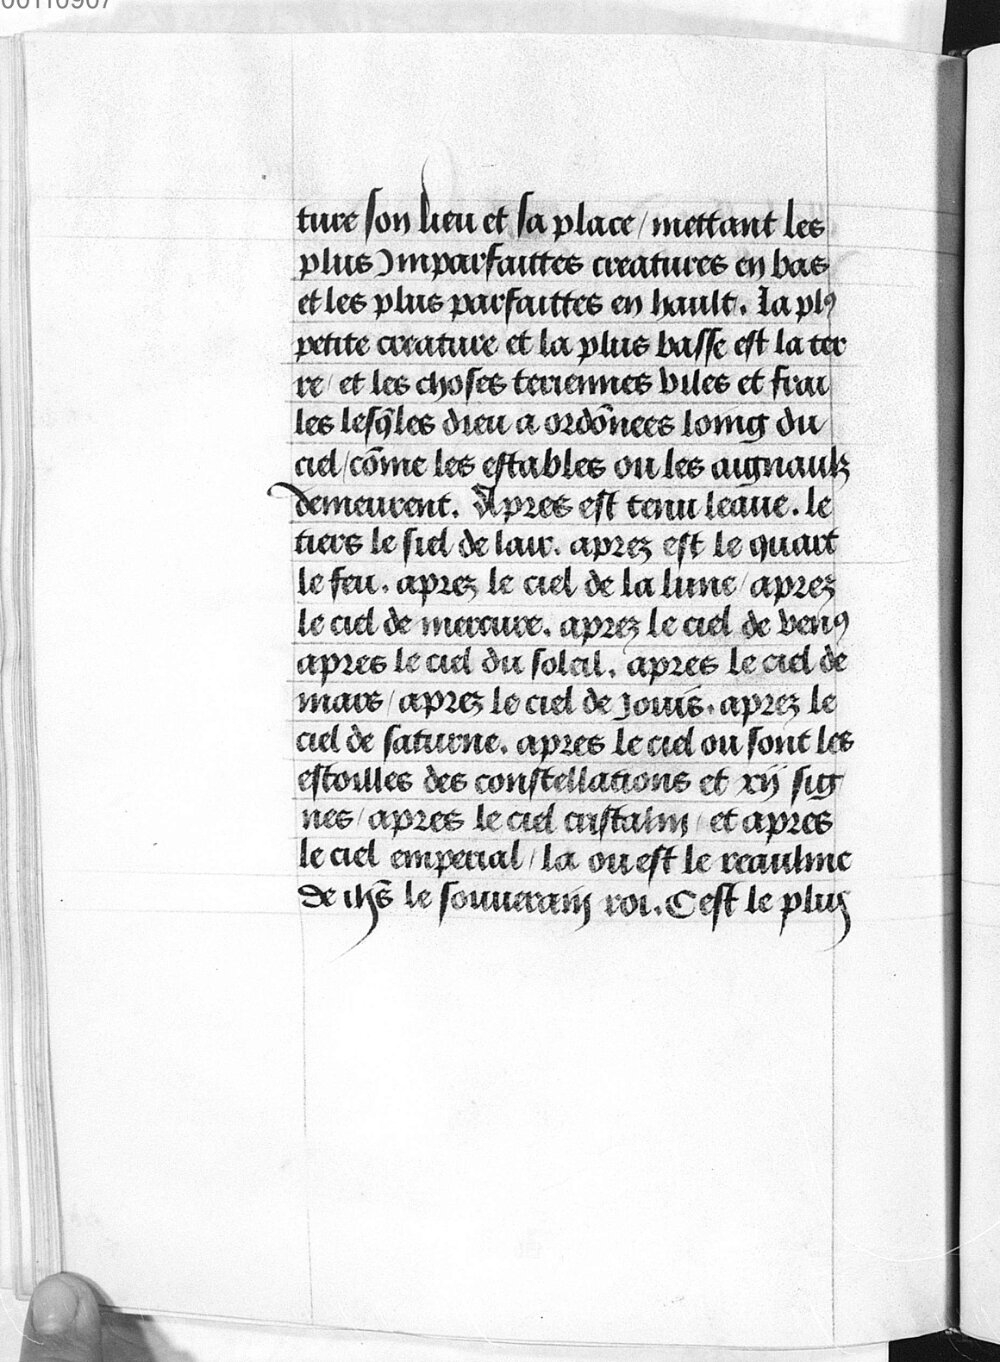 00110907
ture son lieu et sa place / mettant les
plus Imparfaittes creatures en bas
et les plus parfaittes en hault. La plꝰ
petite creature et la plus basse est la ter
re / et les choses teriennes viles et frai
les lesq̃les dieu a ordõnees loing du
ciel / cõme les estables ou les aignaulx
demeurent. Apres est tenu leaue. le
tiers le siel de lair. aprez est le quart
le feu. aprez le ciel de la lune / aprez
le ciel de mercure. aprez le ciel de venꝰ
apres le ciel du soleil. apres le ciel de
mars / aprez le ciel de Jouis. aprez le
ciel de saturne. apres le ciel ou sont les
estoilles des constellations et xij sig
nes / apres le ciel cristalin / et apres
le ciel emperial / la ou est le reaulme
de ihs̃ le souuerain roi. C est le plus